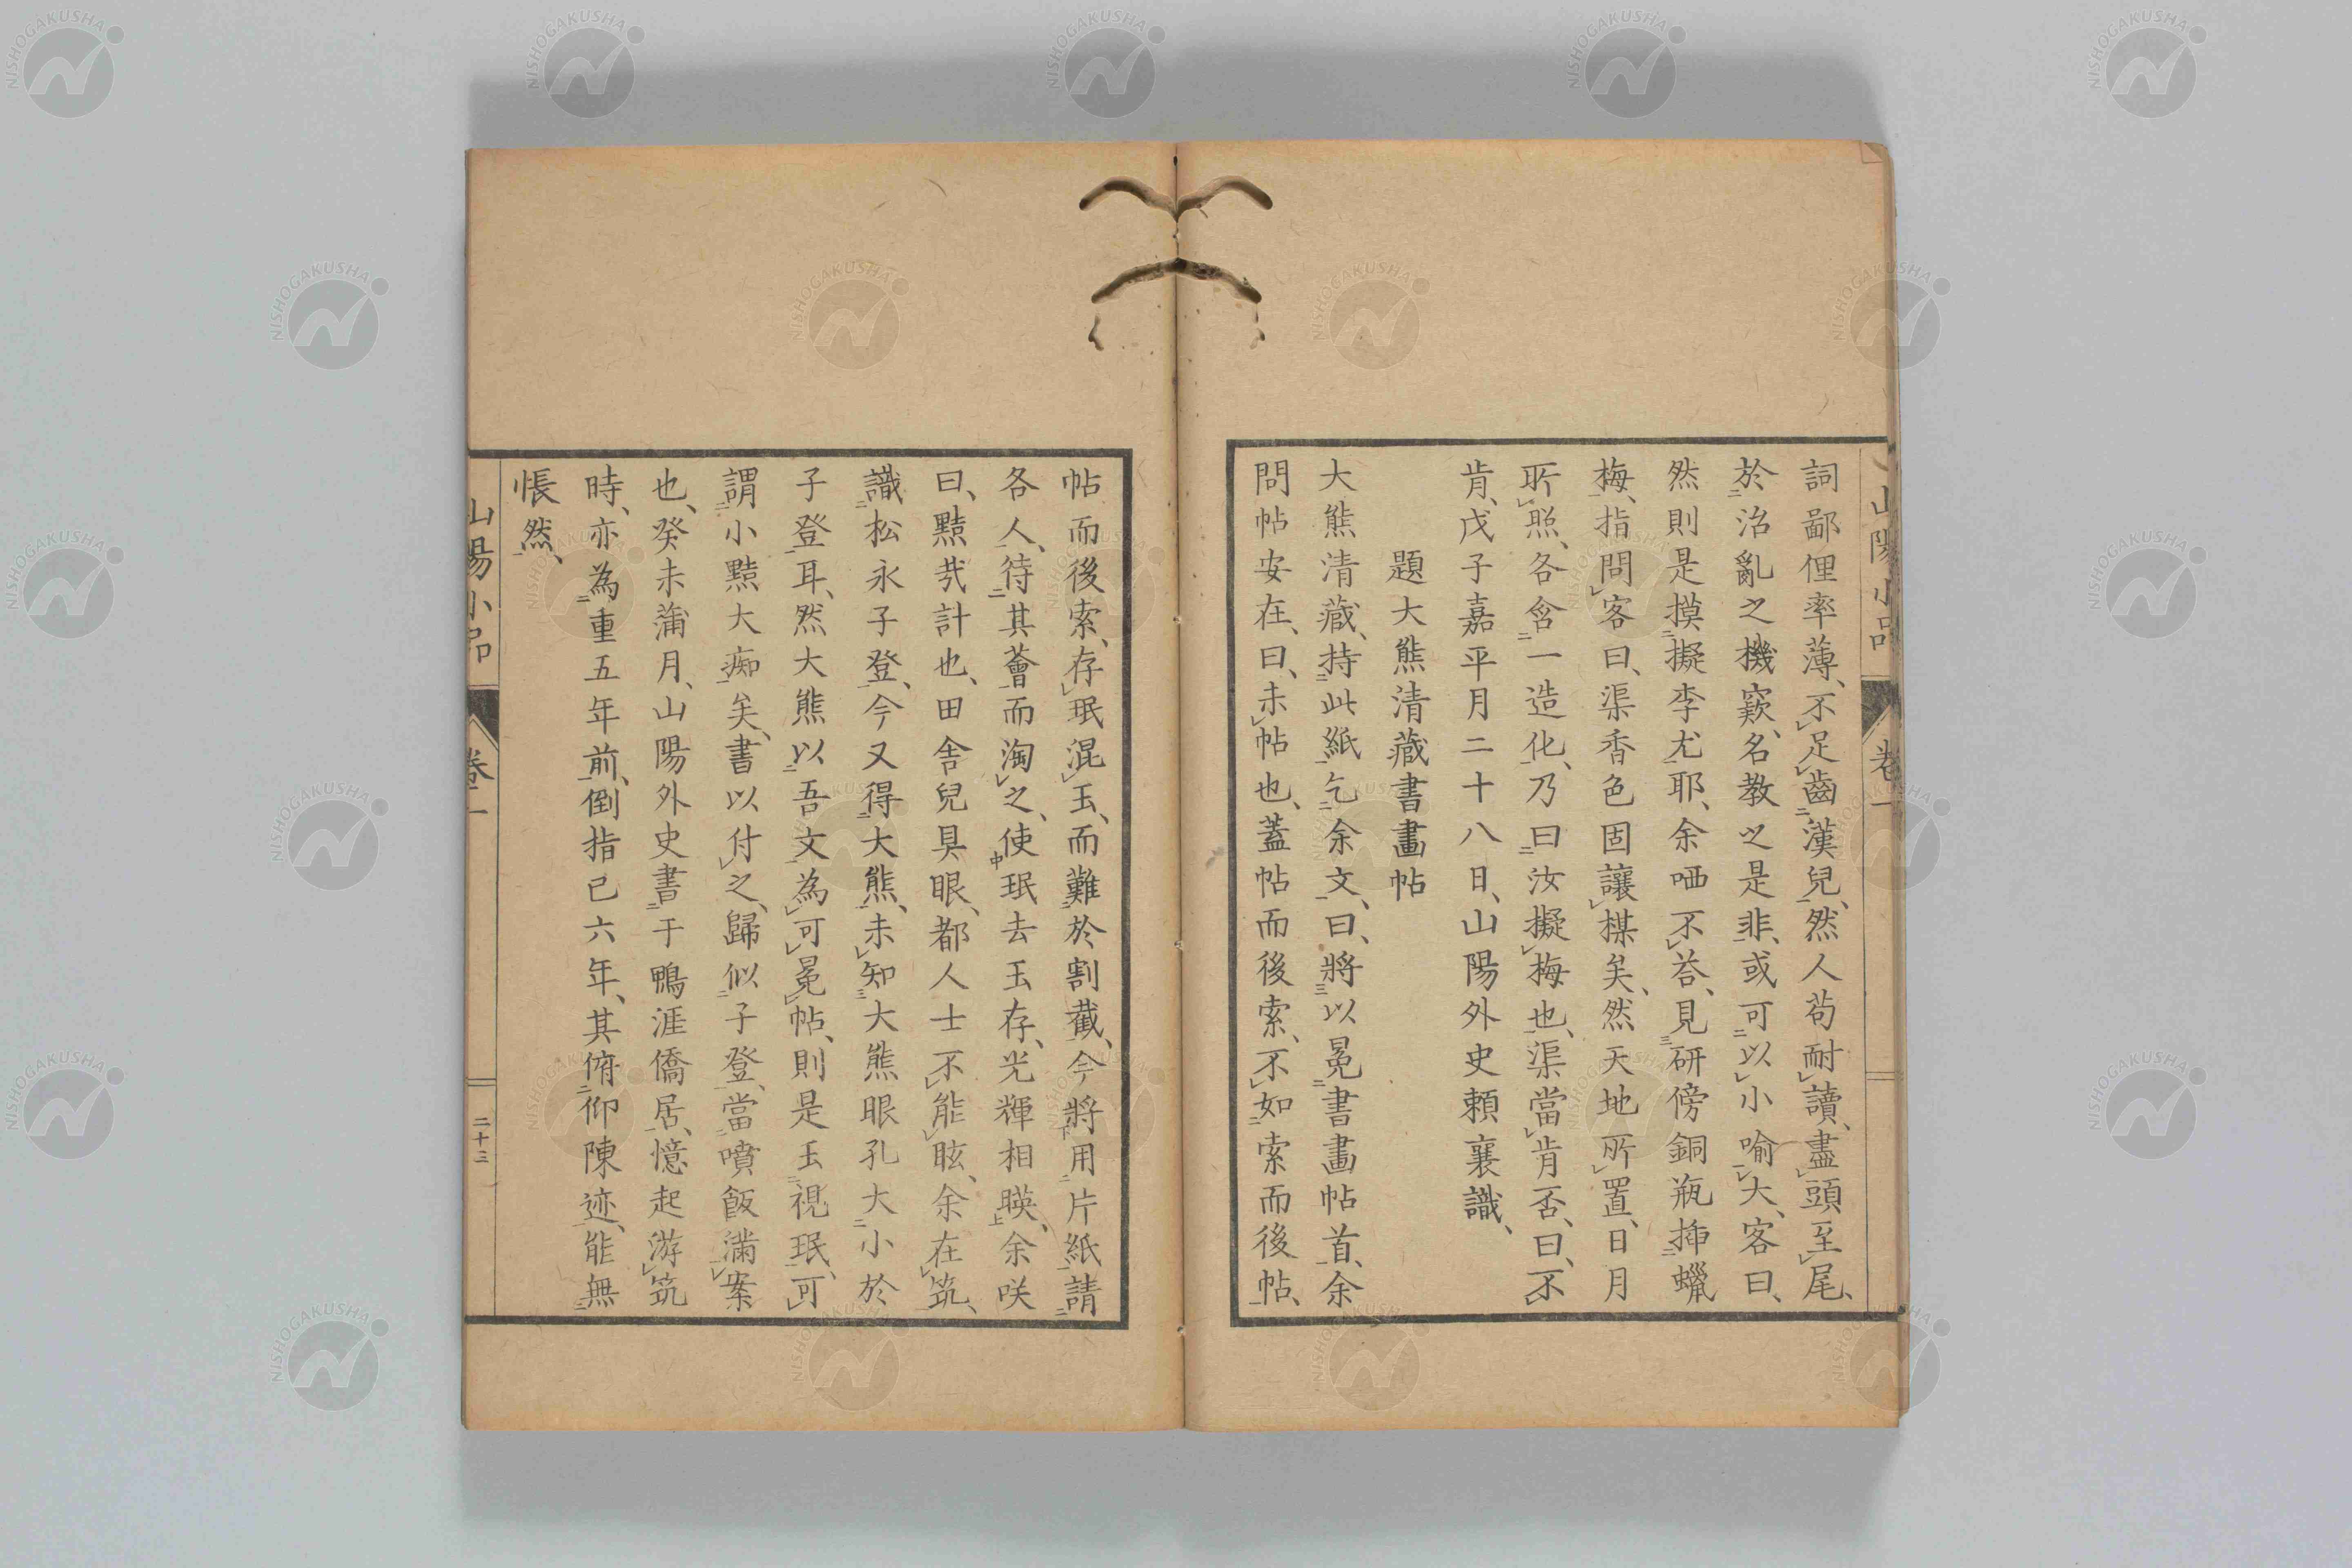 山陽小品 卷一
詞鄙俚率薄、不足齒漢兒、然人苟耐讀、盡頭至尾、
於治亂之機竅、名教之是非、或可以小喻大、客曰、
然則是摸擬李尤耶、余哂不荅、見研傍銅瓶挿蠟
梅、指問、客曰、渠香色固讓楳矣、然天地所置、日月
所照、各含一造化、乃曰汝擬梅也、渠當肯否、曰、不
肯、戊子嘉平月二十八日、山陽外史賴襄識、
題大熊清藏書畫帖
大熊清藏、持此紙乞余文、曰、將以冕書畫帖首、余
問帖安在、曰、未帖也、蓋帖而後索、不如索而後帖、
帖而後索、存珉混玉、而難於割截、今將用片紙請
各人、待其薈而淘之、使珉去玉存、光輝相暎、余咲
曰、黠哉計也、田舍兒具眼、都人士不能眩、余在筑、
識松永子登、今又得大熊、未知大熊眼孔大小於
子登耳、然大熊以吾文為可冕帖、則是玉視珉、可
謂小黠大痴矣、書以付之、歸似子登、當噴飯滿案
也、癸未蒲月、山陽外史書于鴨涯僑居、憶起游筑
時、亦為重五年前、倒指已六年、其俯仰陳迹、能無
悵然、
山陽小品 卷一 二十三
NISHOGAKUSHA